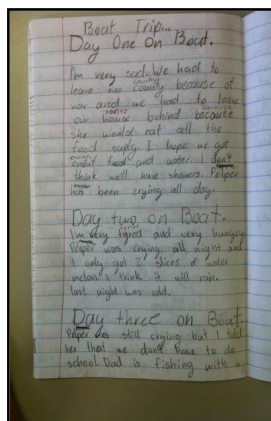 Boat Trip...
Day One On Boad.
I'm very sad. We had to
leave our country because of
war and we had to leave
our behind because
she would eat all the
food suply. I hope we got
food and water. I don't
think well have showers. Pepper
has been crying all day.
Day two on Boat.
I'm very tired and very hungry
Pepper was crying all night and
I only got 2 slices of water
melon. I think it will rain.
last night was cold.
Day three on Boat.
Pepper was still crying but I told
her that we don't have to do
school. Dad is fishing with a